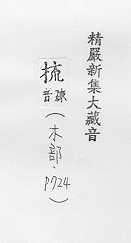 精嚴新集大藏音
梳疎音(木部,p724)